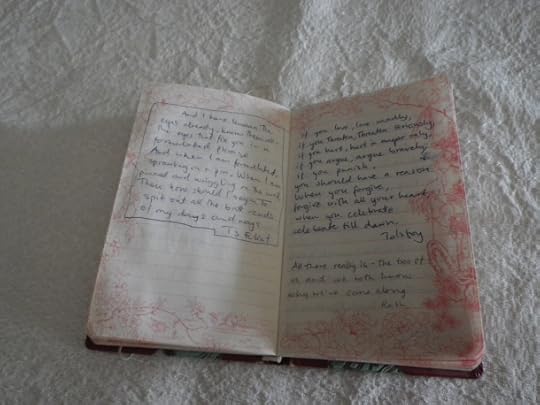 And I have known the
eyes already, known them all,
The eyes that fix you in a
formulated phrase
And when I am formulated,
sprawling on a pin, When I am
pinned and wriggling on the wall
Then how should I begin to
spit out all the butt-ends
of my days and ways
TS Eliot
if you love, love madly,
if you threaten, threaten seriously,
if you hurt, hurt a major only,
if you argue, argue bravely
if you punish,
you should have a reason
When you forgive,
forgive with all your heart,
when you celebrate
celebrate till dawn.
Tolstoy
All there really is - The two of
us and we both know
why we've come along